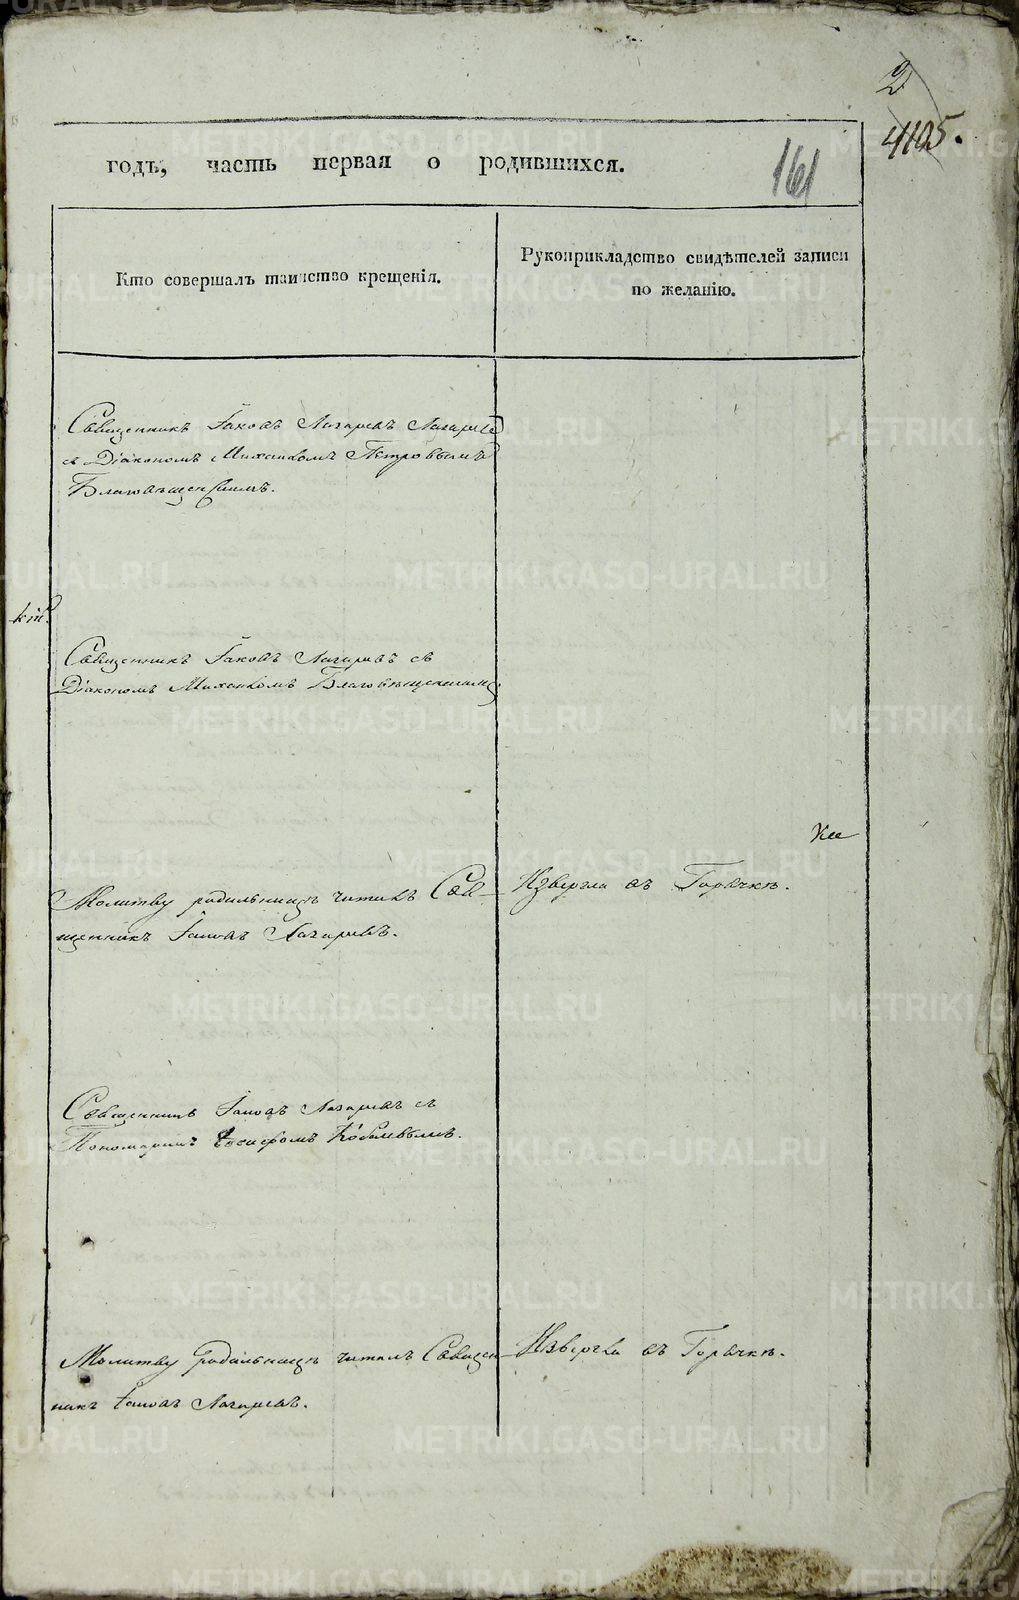 2
4105.
161
годъ, часть первая о родившихся.
Кто совершалъ таинство крещенія.
Рукоприкладство свидѣтелей записи
по желанію.
Священникъ Іаковъ Лазаревъ Лазаревъ
съ Діакономъ Михаиломъ Петровымъ
Благовѣщенскимъ.
Священникъ Іаковъ Лазаревъ съ
Діакономъ Михаиломъ Благовѣщенскимъ
Молитву родильницѣ читалъ Свя-
щенникъ Іаковъ Лазаревъ.
Извергла въ Горячкѣ.
Священникъ Іаковъ Лазаревъ съ
Пономаремъ Іосифомъ
Молитву родильницѣ читалъ Священ-
никъ Іаковъ Лазаревъ.
Извергла въ Горячкѣ.
METRIKI.GASO-URAL.RU